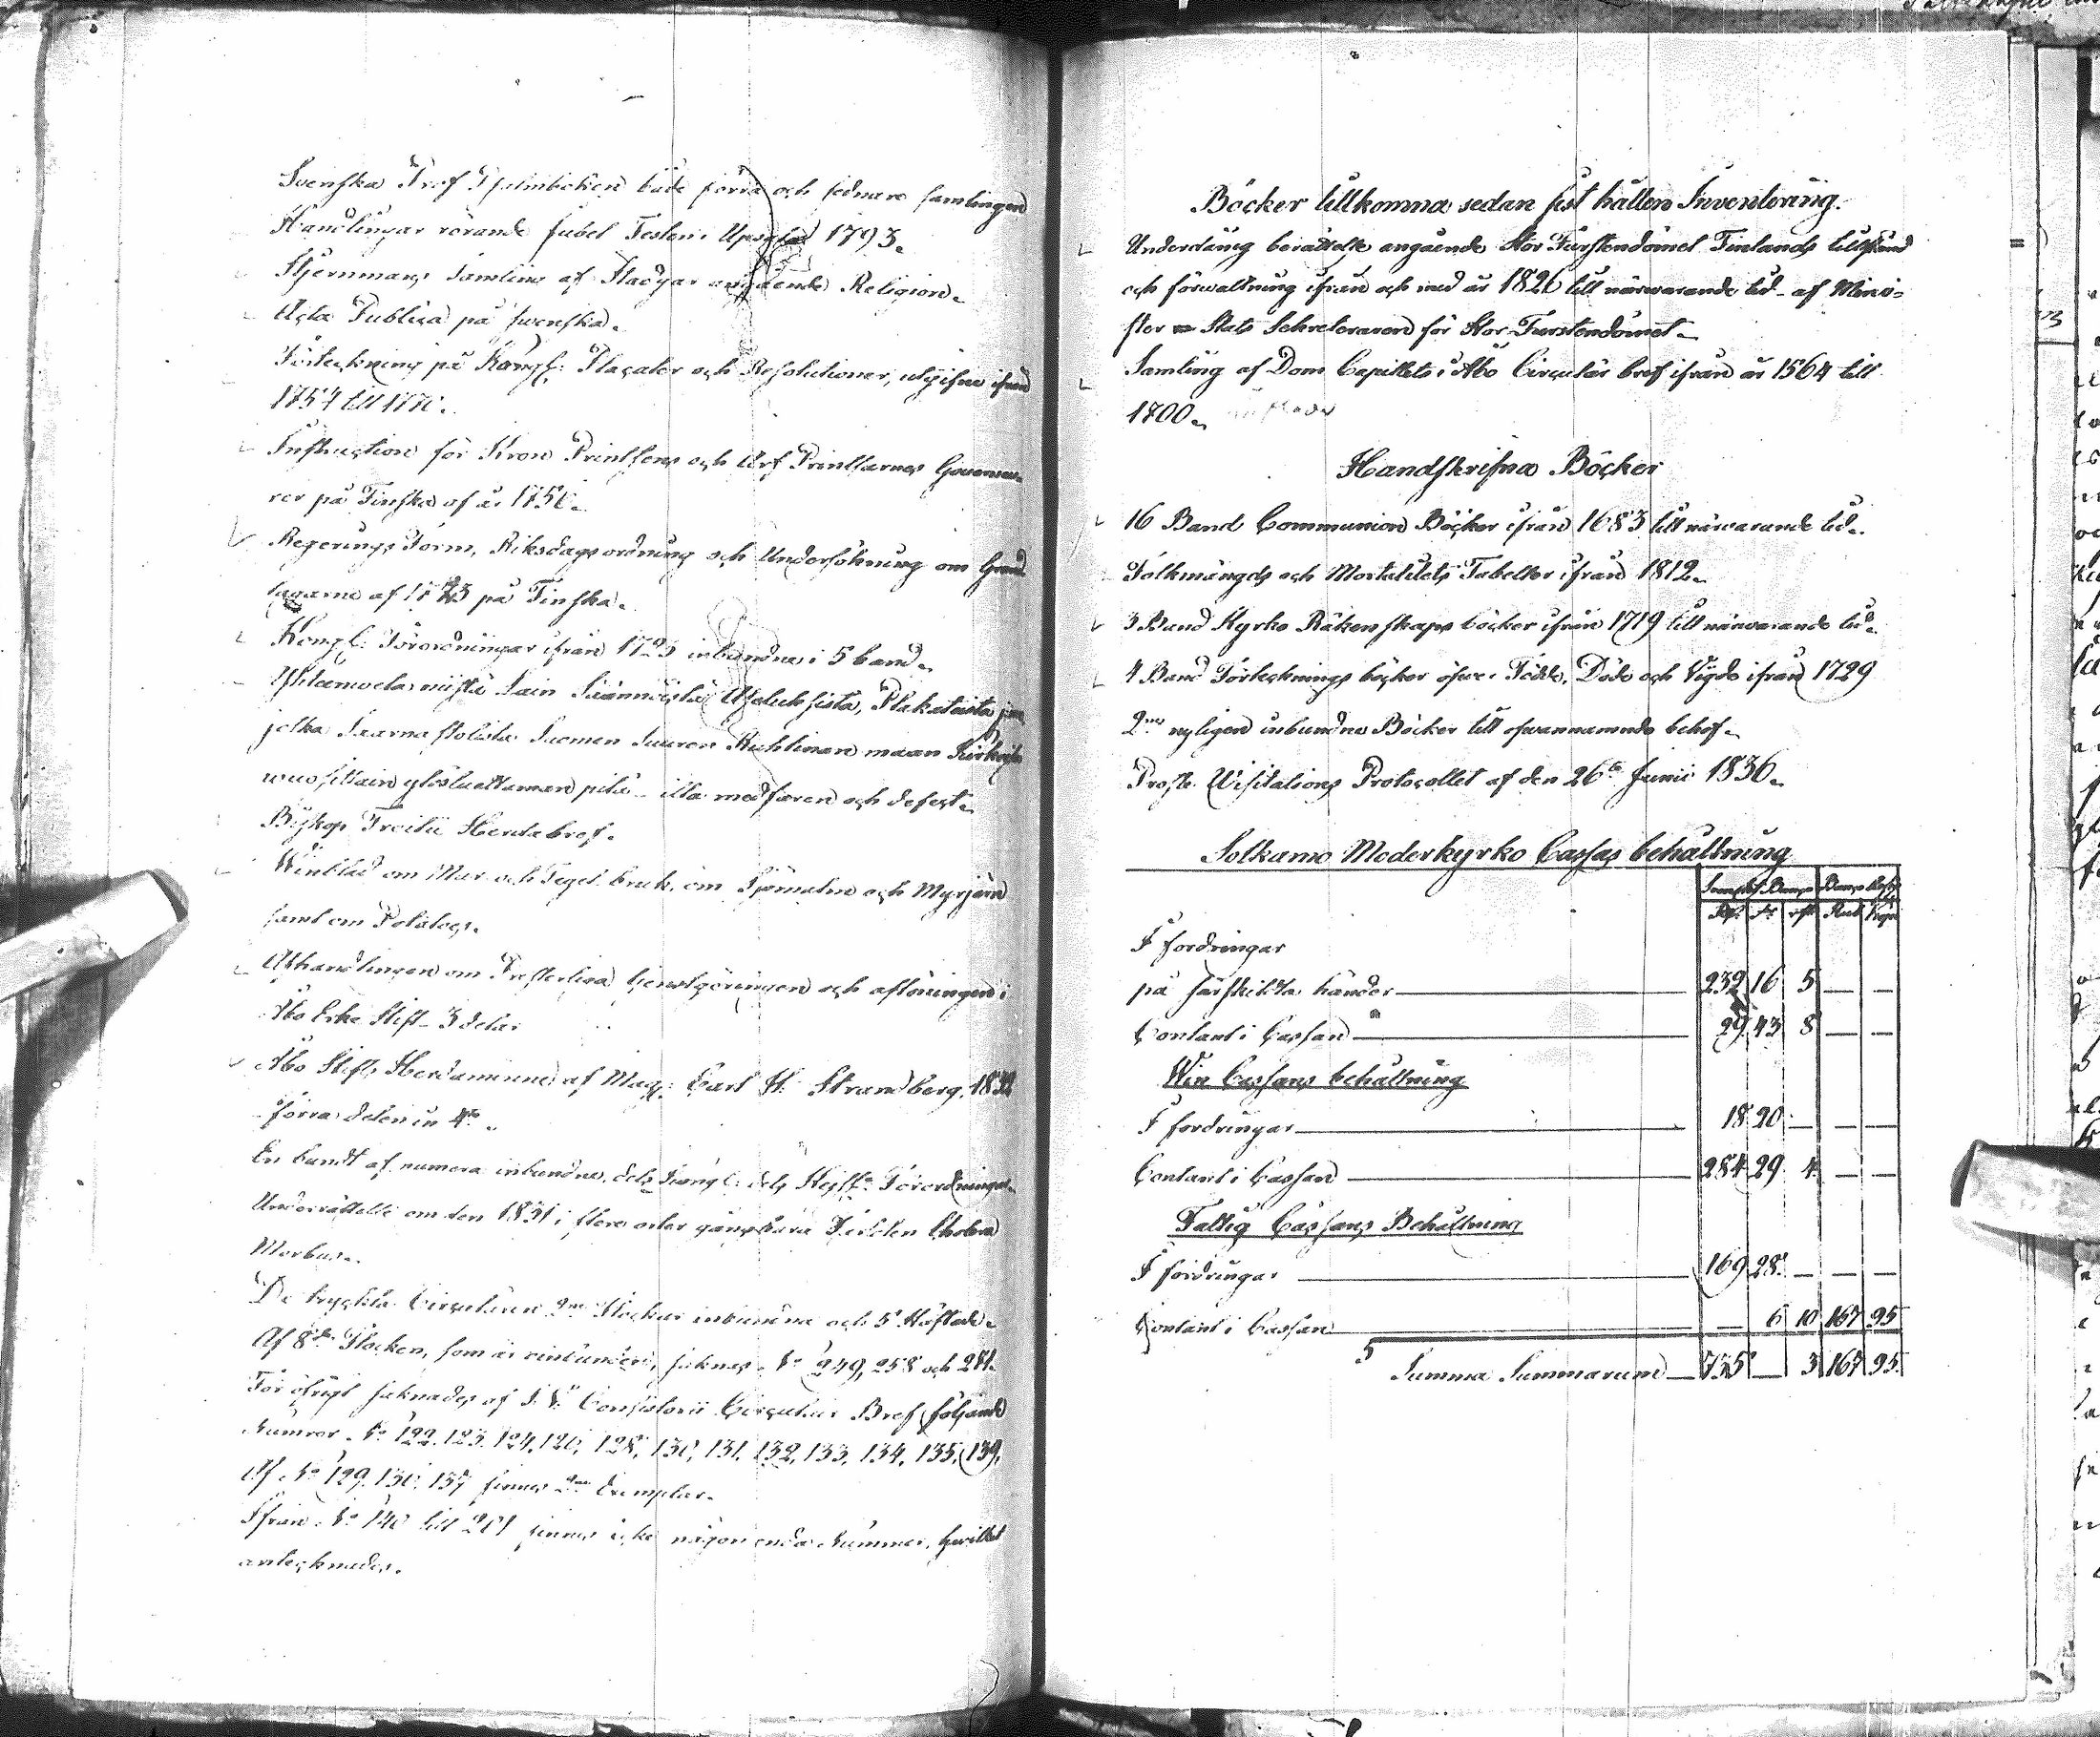 Svenska Prof Psalmboken både förra och sednare samlingen
Handlingar rörande Jubel Festen i Upsala 1793.
Stjernmans Samling af Stadgar angående Religion.
Acta Publica på swenska.
Förteckning på Kongl: Placater och Resolutioner, utgifne ifrån
1754 till 1770.
Instruction för Kron Printsens och Arf Printsarnes Gouverneu-
rer på Finska af år 1756.
Regerings Form, Riksdags ordning och Undersökning om Grund
lagarne af 1723 på Finska.
Kongl: Förordningar ifrån 1723 inbundna i 5 band.
Sain Säännöistä Asetuksista, Plakateista
jotka Suomen Suuren Ruhtinan maan
illa medfaren och defect.
Biskop Herdabref.
Winblad om Mur och Tegel bruk, om Sjömalm och Myrjern
samt om Potatoes.
Afhandlingen om Presterliga tjenstgöringen och aflöningen i
Åbo Erke Stift 3 delar
Åbo Stifts Herdaminne af Mag: Carl H: Strandberg. 1832
förra delen in 4to.
En bundt af numera inbundne, dels Kongl: dels Kejs. Förordningar.
Underrättelse om den 1831 i flere orter gångbara Farsoten Cholera
Morbus.
De tryckta Circulären 2ne Flockar inbundna och 5 Häftade.
Af 8de Flocken, som är oinbunden, saknas No 249, 258 och 281.
För öfrigt saknades af Consistorii Circulär Bref följande
Numror No 122. 123. 124. 126, 128, 130, 131. 132, 133. 134. 135. 139.
Af No 129. 136. 137 finnes 2ne Exemplar.
Ifrån No 140 till 201 finnes icke någon enda Nummer, hwilket
antecknades.
Böcker tillkomna sedan sist hållen Inventering.
Underdånig berättelse angående Stor Furstendömet Finlands tillstånd
och förwaltning ifrån och med år 1826 till närwarande tid af Mini-
ster Stats Sekreteraren för Stor Furstendömet.
Samling af Dom Capitlets i Åbo Circulär bref ifrån år 1564 till
1700.
Handskrifna Böcker
16 Band Communion Böcker ifrån 1683 till närwarande tid.
Folkmängds och Mortalitets Tabeller ifrån 1812.
3 Band Kyrko Räkenskaps böcker ifrån 1719 till närwarande tid.
4 Band Förtecknings böcker öfwer Födde, Döde och Vigde ifrån 1729
2ne nyligen inbundne Böcker till ofwannämnde behof.
Proste Visitations Protocollet af den 26te Junii 1836.
Sotkamo Moderkyrko Cassas behållning
Banco
Rub Kop
I fordringar
på särskilda händer 232 16 5 — —
Contant i Cassan 29 43 8 — —
Win Cassans behållning
I fordringar 18 20 — — —
Contant i Cassan 284 29 4 — —
Fattig Cassans Behållning
I fordringar 169 28 — — —
Contant i Cassan — 6 10 167 95
Summa Summarum 735 — 3 167 95